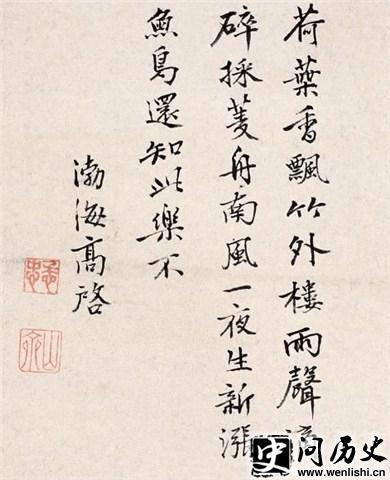 荷葉香飄竹外樓雨聲滴
碎採菱舟南風一夜生新漲
魚鳥還知此樂不
渤海高啓
史问历史
www.wenlishi.cn